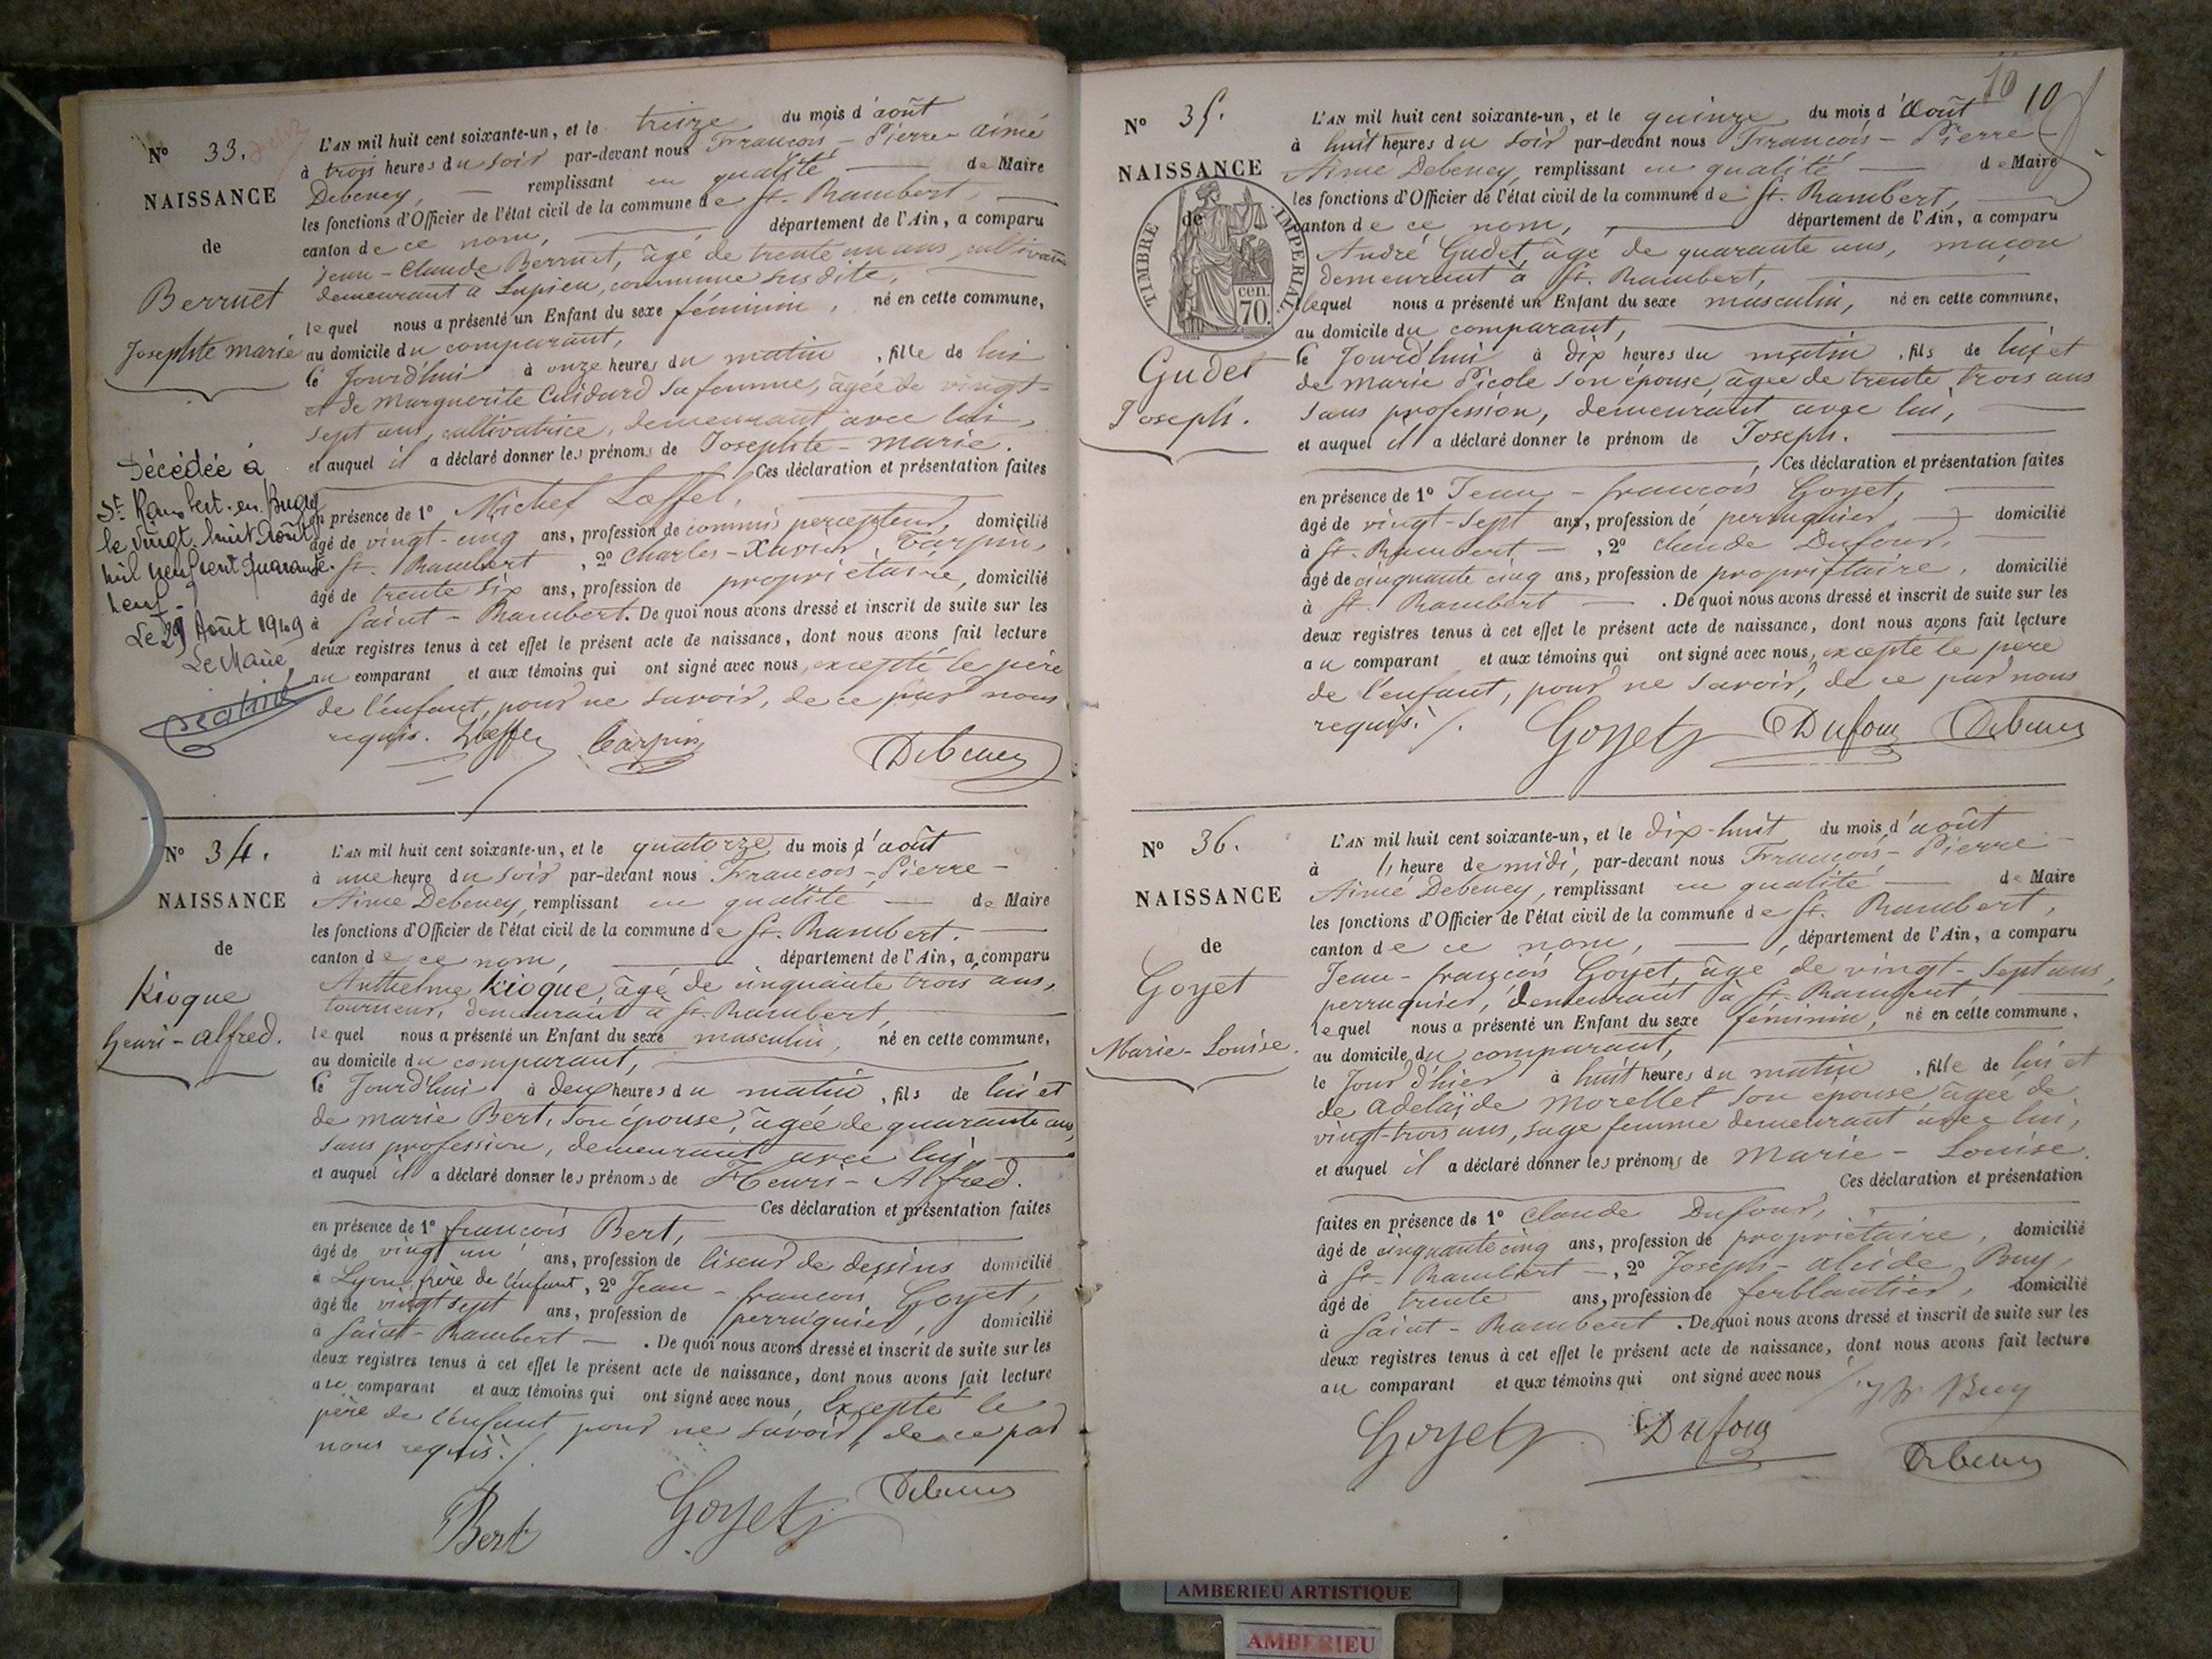 N° 33.
NAISSANCE
de
Berruet
Josephte marie
Décédée à
St Rambert-en-Bugey
le vingt huit Août
mil neuf cent quarante
neuf.
Le 29 Août 1949
Le Maire
L'AN mil huit cent soixante-un, et le treize du mois d'août
à trois heures du soir par-devant nous François-Pierre-Aimé
Debeney, remplissant en qualité de Maire
les fonctions d'Officier de l'état civil de la commune de St. Rambert,
canton de ce nom, département de l'Ain, a comparu
Jean-Claude Berruet, âgé de trente un ans, cultivateur
demeurant à Lupieu, commune susdite,
lequel nous a présenté un Enfant du sexe féminin, né en cette commune,
au domicile du comparant,
le Jourd'hui à onze heures du matin, fille de lui
et de Marguerite Cuidard sa femme, âgée de vingt-
sept ans, cultivatrice, demeurant avec lui,
et auquel il a déclaré donner les prénoms de Josephte-marie.
Ces déclaration et présentation faites
en présence de 1° Michel Lœffel,
âgé de vingt-cinq ans, profession de commis percepteur, domicilié
à St. Rambert, 2° Charles-Xavier Tarpin,
âgé de trente six ans, profession de propriétaire, domicilié
à Saint-Rambert. De quoi nous avons dressé et inscrit de suite sur les
deux registres tenus à cet effet le présent acte de naissance, dont nous avons fait lecture
au comparant et aux témoins qui ont signé avec nous, excepté le père
de l'enfant, pour ne savoir, de ce par nous
requis. Lœffel Tarpin Debeney
N° 34.
NAISSANCE
de
Kioque
henri-alfred.
L'AN mil huit cent soixante-un, et le quatorze du mois d'août
à une heure du soir par-devant nous François-Pierre-
Aimé Debeney, remplissant en qualité de Maire
les fonctions d'Officier de l'état civil de la commune de St. Rambert.
canton de ce nom, département de l'Ain, a comparu
Anthelme Kioque, âgé de cinquante trois ans,
tourneur, demeurant à St. Rambert,
lequel nous a présenté un Enfant du sexe masculin, né en cette commune,
au domicile du comparant,
le Jourd'hui à deux heures du matin, fils de lui et
de marie Bert, son épouse, âgée de quarante ans,
sans profession, demeurant avec lui,
et auquel il a déclaré donner les prénoms de Henri-Alfred.
Ces déclaration et présentation faites
en présence de 1° françois Bert,
âgé de vingt un ans, profession de liseur de dessins domicilié
à Lyon, frère de l'enfant, 2° Jean-françois Goyet,
âgé de vingt sept ans, profession de perruquier, domicilié
à Saint-Rambert. De quoi nous avons dressé et inscrit de suite sur les
deux registres tenus à cet effet le présent acte de naissance, dont nous avons fait lecture
au comparant et aux témoins qui ont signé avec nous, Excepté le
père de l'enfant pour ne savoir, de ce par
nous requis./.
Bert Goyet Debeney
10 10
N° 35.
NAISSANCE
de
TIMBRE IMPERIAL
70. cen.
Gudet
Joseph.
L'AN mil huit cent soixante-un, et le quinze du mois d'Août
à huit heures du soir par-devant nous François-Pierre-
Aimé Debeney, remplissant en qualité de Maire
les fonctions d'Officier de l'état civil de la commune de St. Rambert,
canton de ce nom, département de l'Ain, a comparu
André Gudet, âgé de quarante ans, maçon
demeurant à St. Rambert,
lequel nous a présenté un Enfant du sexe masculin, né en cette commune,
au domicile du comparant,
le Jourd'hui à dix heures du matin, fils de lui et
de marie Picole son épouse, âgée de trente trois ans
sans profession, demeurant avec lui,
et auquel il a déclaré donner le prénom de Joseph.
Ces déclaration et présentation faites
en présence de 1° Jean-françois Goyet,
âgé de vingt-sept ans, profession de perruquier, domicilié
à St. Rambert, 2° Claude Dufour,
âgé de cinquante cinq ans, profession de propriétaire, domicilié
à St. Rambert. De quoi nous avons dressé et inscrit de suite sur les
deux registres tenus à cet effet le présent acte de naissance, dont nous avons fait lecture
au comparant et aux témoins qui ont signé avec nous, excepté le père
de l'enfant, pour ne savoir, de ce par nous
requis./. Goyet Dufour Debeney
N° 36.
NAISSANCE
de
Goyet
Marie-Louise.
L'AN mil huit cent soixante-un, et le dix-huit du mois d'août
à l'heure de midi, par-devant nous François-Pierre-
Aimé Debeney, remplissant en qualité de Maire
les fonctions d'Officier de l'état civil de la commune de St. Rambert,
canton de ce nom, département de l'Ain, a comparu
Jean-françois Goyet, âgé de vingt-sept ans,
perruquier, demeurant à St. Rambert,
lequel nous a présenté un Enfant du sexe féminin, né en cette commune,
au domicile du comparant,
le Jour d'hier à huit heures du matin, fille de lui et
de adelaïde Morellet son épouse âgée de
vingt-trois ans, sage femme demeurant avec lui,
et auquel il a déclaré donner les prénoms de Marie-Louise.
Ces déclaration et présentation
faites en présence de 1° Claude Dufour,
âgé de cinquante cinq ans, profession de propriétaire, domicilié
à St. Rambert, 2° Joseph-alcide Buy,
âgé de trente ans, profession de ferblantier, domicilié
à Saint-Rambert. De quoi nous avons dressé et inscrit de suite sur les
deux registres tenus à cet effet le présent acte de naissance, dont nous avons fait lecture
au comparant et aux témoins qui ont signé avec nous
Buy
Goyet Dufour Debeney
AMBERIEU ARTISTIQUE
AMBERIEU